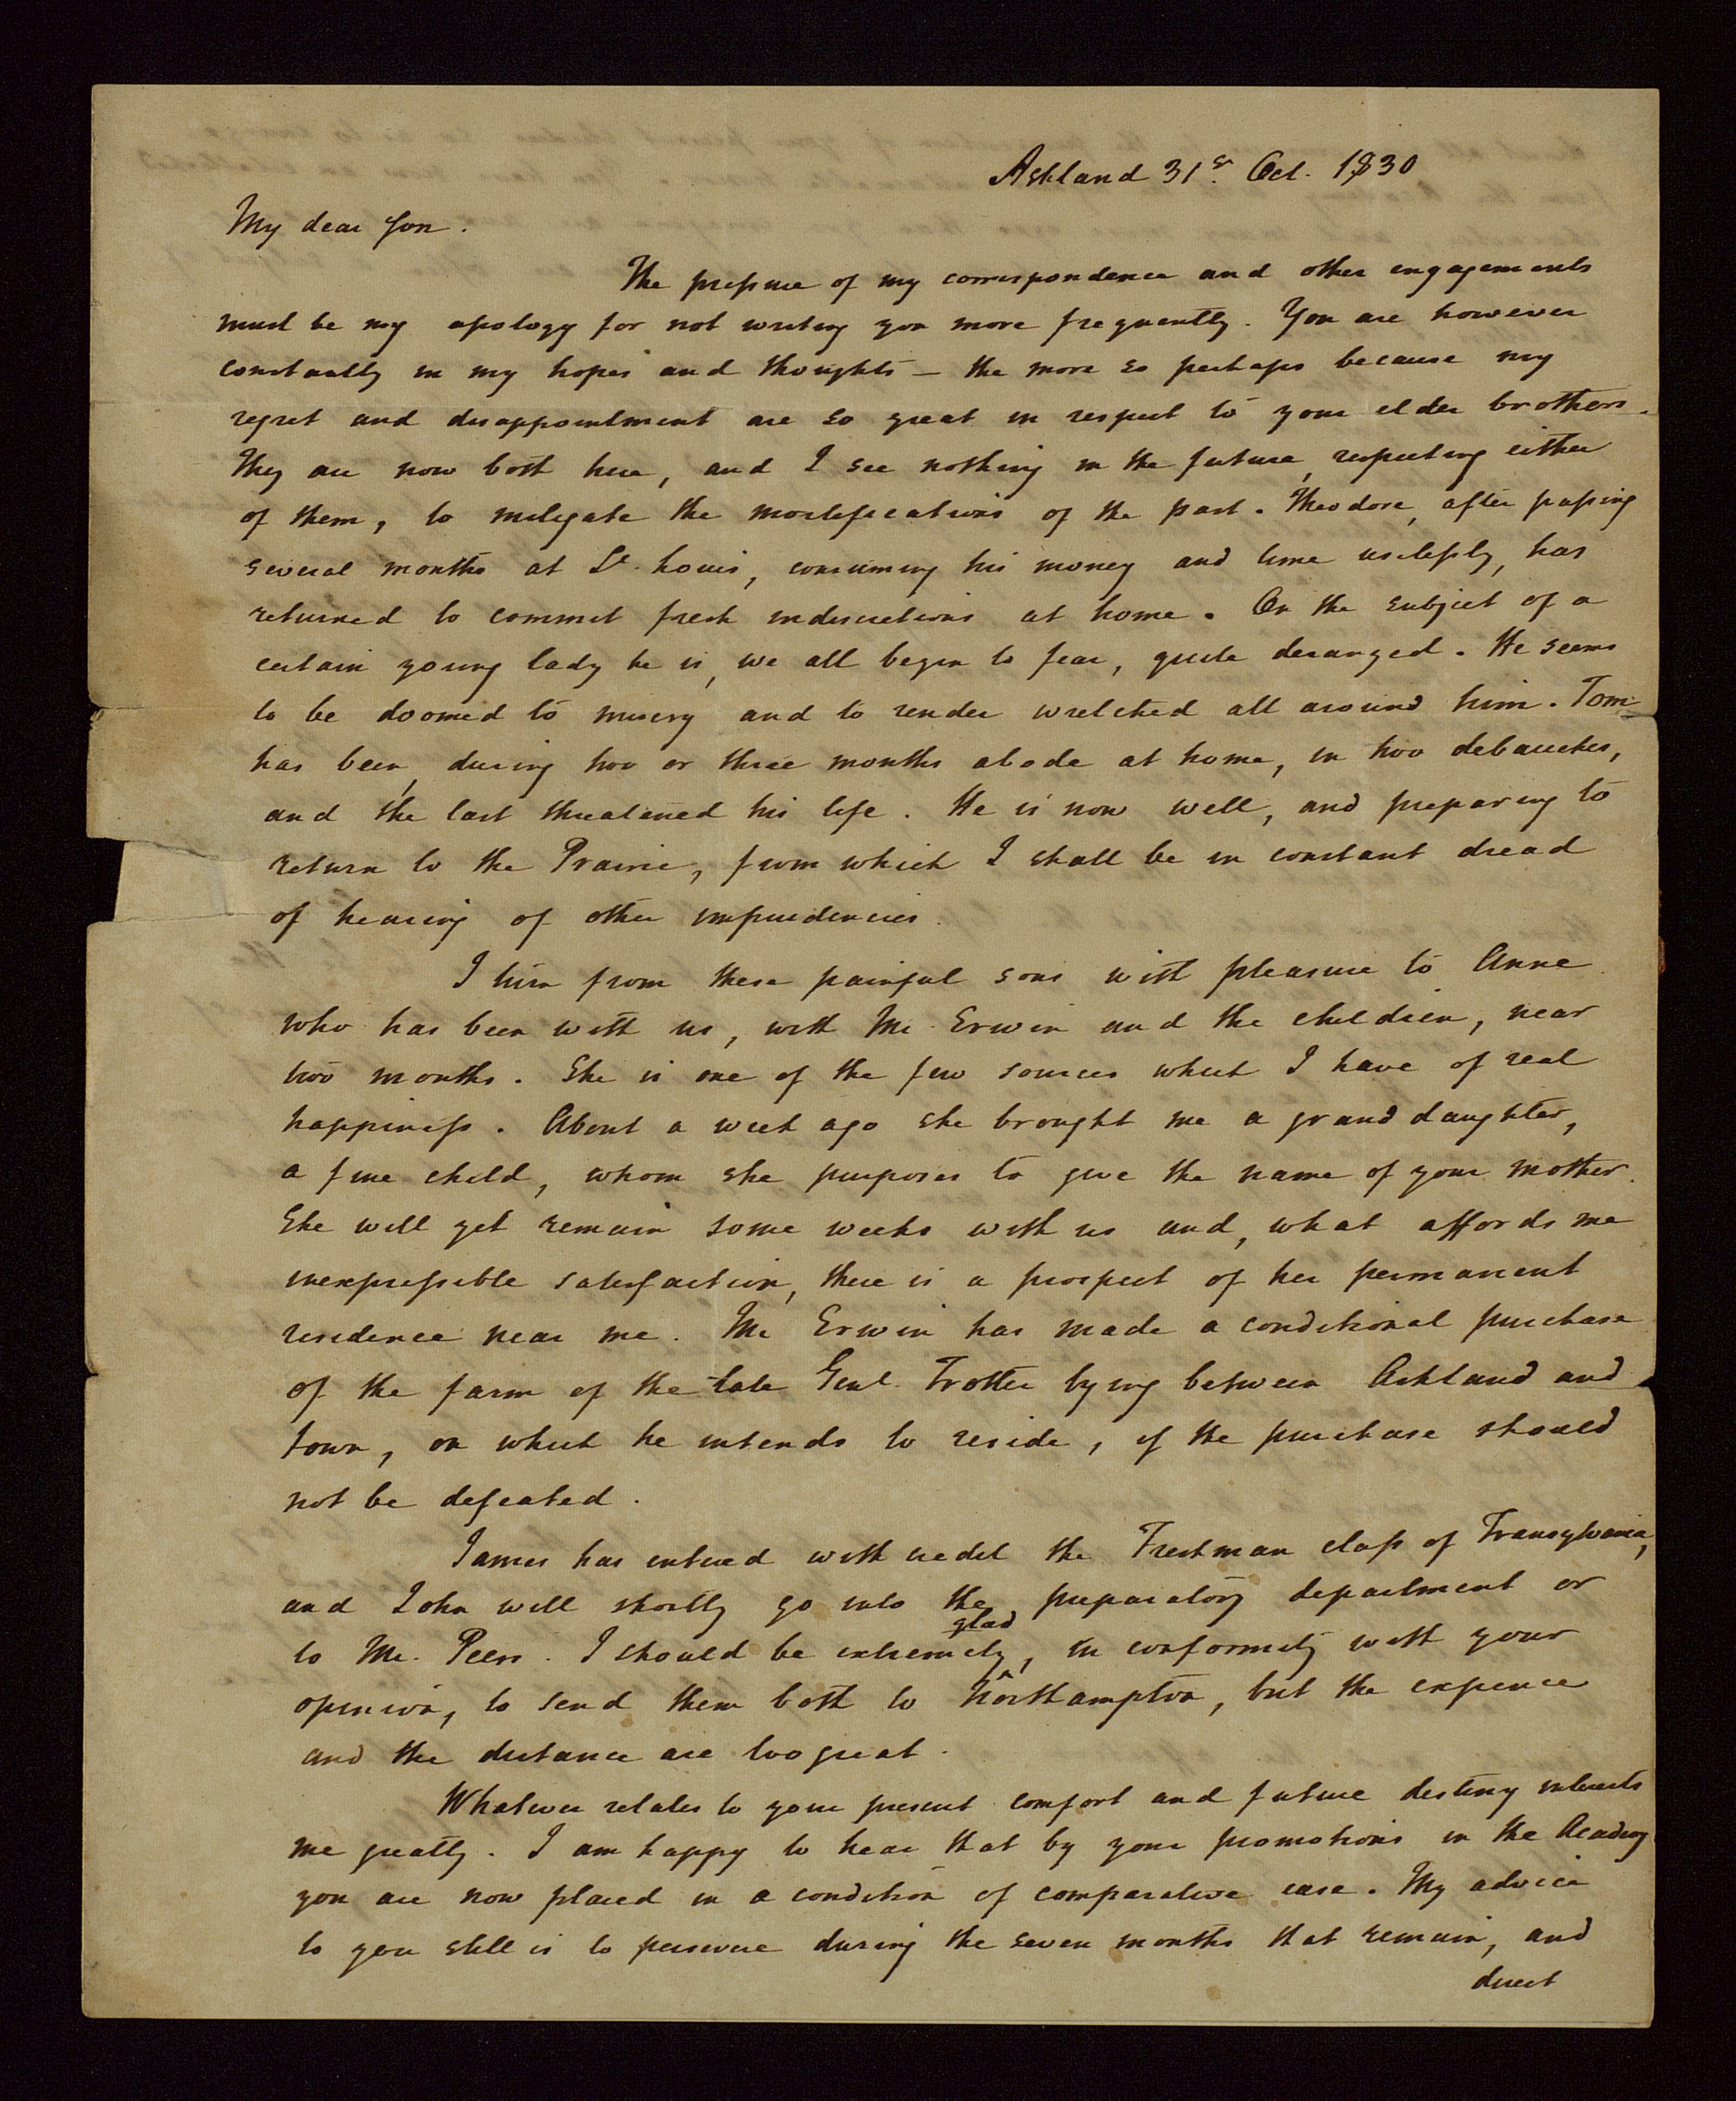 Ashland 31st. Oct. 1830
My dear Son.
The pressure of my correspondence and other engagements
must be my apology for not writing you more frequently. You are however
constantly in my hopes and thoughts — the more so perhaps because my
regret and disappointment are so great in respect to your elder brothers.
They are now both here, and I see nothing in the future, respecting either
of them, to mitigate the mortifications of the past. Theodore, after passing
several months at St. Louis, consuming his money and time uselessly, has
returned to commit fresh indiscretions at home. On the subject of a
certain young lady he is, we all begin to fear, quite deranged. He seems
to be doomed to misery and to render wretched all around him. Tom
has been, during two or three months abode at home, in two debauches,
and the last threatened his life. He is now well, and preparing to
return to the Prairie, from which I shall be in constant dread
of hearing of other imprudencies.
I turn from these painful sons with pleasure to Anne
who has been with us, with Mr. Erwin and the children, near
two months. She is one of the few sources which I have of real
happiness. About a week ago she brought me a grand daughter,
a fine child, whom she purposes to give the name of your mother.
She will yet remain some weeks with us and, what affords me
inexpressible satisfaction, there is a prospect of her permanent
residence near me. Mr Erwin has made a conditional purchase
of the farm of the late Genl. Trotter lying between Ashland and
town, on which he intends to reside, if the purchase should
not be defeated.
James has entered with credit the Freshman class of Transylvania,
and John will shortly go into the preparatory department or
to Mr. Peers. I should be extremely glad, in conformity with your
opinion, to send them both to Northampton, but the expence
and the distance are too great.
Whatever relates to your present comfort and future destiny interests
me greatly. I am happy to hear that by your promotions in the Academy
you are now placed in a condition of comparative ease. My advice
to you still is to persevere during the seven months that remain, and
direct